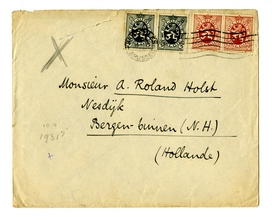 Monsieur A. Roland Holst
Nesdijk
Bergen-binnen (N.H.)
(Hollande)
1931?